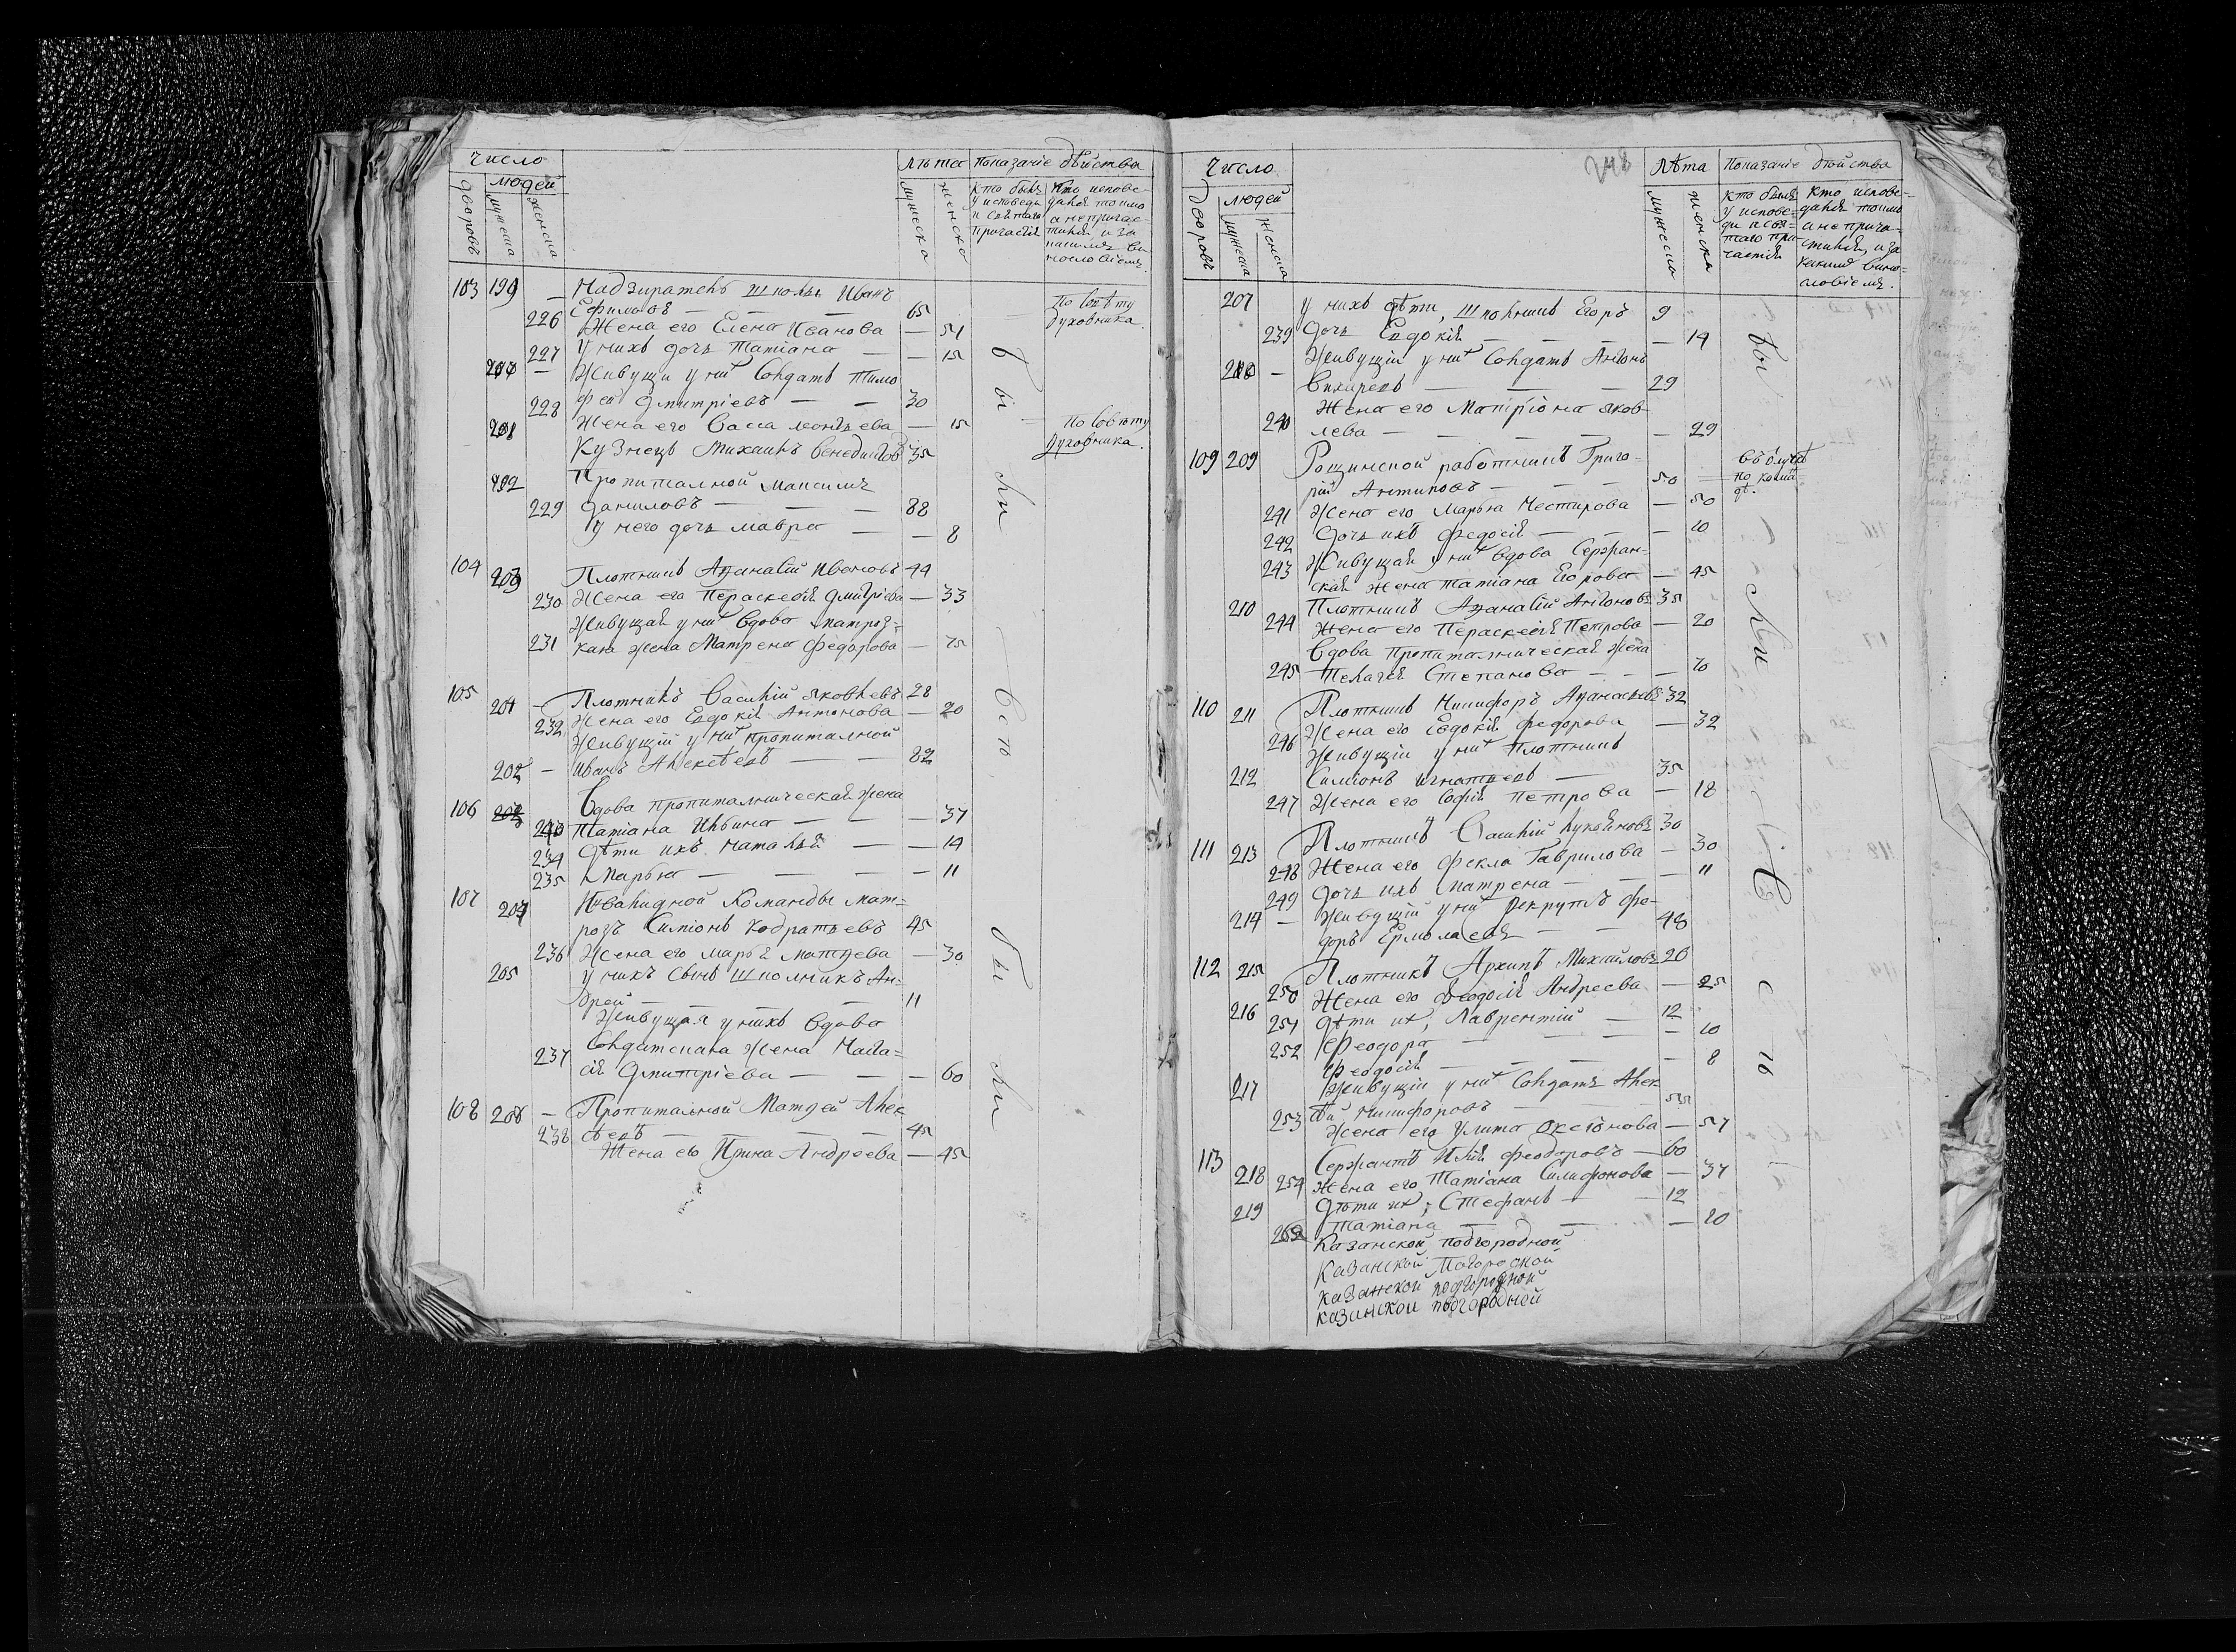 Число
людей
дворовъ
мужеска
женска
лѣта
мужеска
женска
Показаніе дѣйства
Кто былъ
у исповеди
и святаго
причастія
Кто испове-
дался токмо
а непричас-
тился и за
какимъ ви-
нословіемъ
103 199 — Надзиратель школы Иванъ
Ефимовъ — — — 65 По совѣту Духовника
226 Жена его Елена Иванова — 51
227 У нихъ дочь Татіана — — 15
200 — Живущи у них Солдатъ Тимо
фей Дмитріевъ — — 30
228 Жена его Васса Леонтьева — 15
201 Кузнецъ Михаилъ 35 По совѣту Духовника
Пропиталной Максимъ
Даниловъ — — — 88
229 У него дочь Мавра — — 8
104 Плотникъ Афанасій Ивановъ 44
230 Жена его Пераскевія Дмитріева — 33
Живущая у них вдова матроз=
231 кая жена Матрена Федорова — 75
105 201 — Плотникъ Василій Яковлевъ 28
232 Жена его Евдокія Антонова — 20
Живущій у них пропиталной
202 — Иванъ Алексѣевъ — — 82
106 Вдова пропиталническая жена
Татіана Ильина — — — 37
234 Дѣти ихъ Наталья — — 14
235 Марья — — — — 11
107 204 Инвалидной Команды мат=
розъ Симіонъ Кодратьевъ 45
236 Жена его Марья Матвева — 30
205 у нихъ сынъ школникъ Ан-
дрей — — — — 11
Живущая у нихъ вдова
237 Солдатская жена
Дмитріева — — — 60
108 206 — Пропиталной Матвей Алек
сѣевъ — — — — 45
238 Жена его Ирина Андреева — 45
Бы
ли
Всѣ
бы
ли
248
Число
людей
Дворовъ
мужеска
женска
Лѣта
мужеска
женска
Показаніе дѣйства
Кто былъ
у испове-
ди и свя-
таго при-
частія
Кто испове-
дался токмо
а не прича-
стился, и за
какимъ вино-
словіемъ.
207 у нихъ дѣти, школникъ Егоръ 9
239 дочь Евдокія — — — — 14
208 — Живущіи у них Солдатъ Антонъ
Вихаревъ — — — 29
240 Жена его Матріона Яков-
лева — — — — — 29
109 209 Рощинской работникъ Григо-
рій Антиповъ — — — 50
241 Жена его Марья Нестирова — 50
242 Дочь ихъ Федосія — — — 10
243 Живущая у них вдова Сержан-
ская жена Татіана Егорова — 45
210 Плотникъ Афанасій Антоновъ 35
244 Жена его Пераскевія Петрова — 20
Вдова пропиталническая жена
245 Пелагея Степанова — — — 70
110 211 Плотникъ Никифоръ Афанасьевъ 32
246 Жена его Евдокія Федорова — 32
Живущіи у них плотникъ
212 Симіонъ Игнатьевъ — 35
247 Жена его Софія Петрова — 18
111 213 Плотникъ Василій Лукояновъ 30
248 Жена его Фекла Гаврилова — 30
249 дочь ихъ Матрена — — — 11
214 — Живущій у них рекрутъ Фе-
доръ Ермолаевъ — — 48
112 215 Плотникъ Архипъ Михайловъ 26
250 Жена его Феодосія Андреева — 25
216 дѣти их, Лаврентій — 12
251 Феодора — — — — 10
252 Феодосія — — — — 8
217 Живущіи у них Солдатъ Алек
ѣй Никифоровъ — — 55
253 Жена его Улита — 57
113 218 Сержантъ Илія Феодоровъ — 60
254 Жена его Татіана — 37
219 Дѣти их, Стефанъ — — 12
Татіана — — — 20
Казанской подгородной
Казанской Подгородной
казанской подгородной
казанской подгородной
Бы
ли